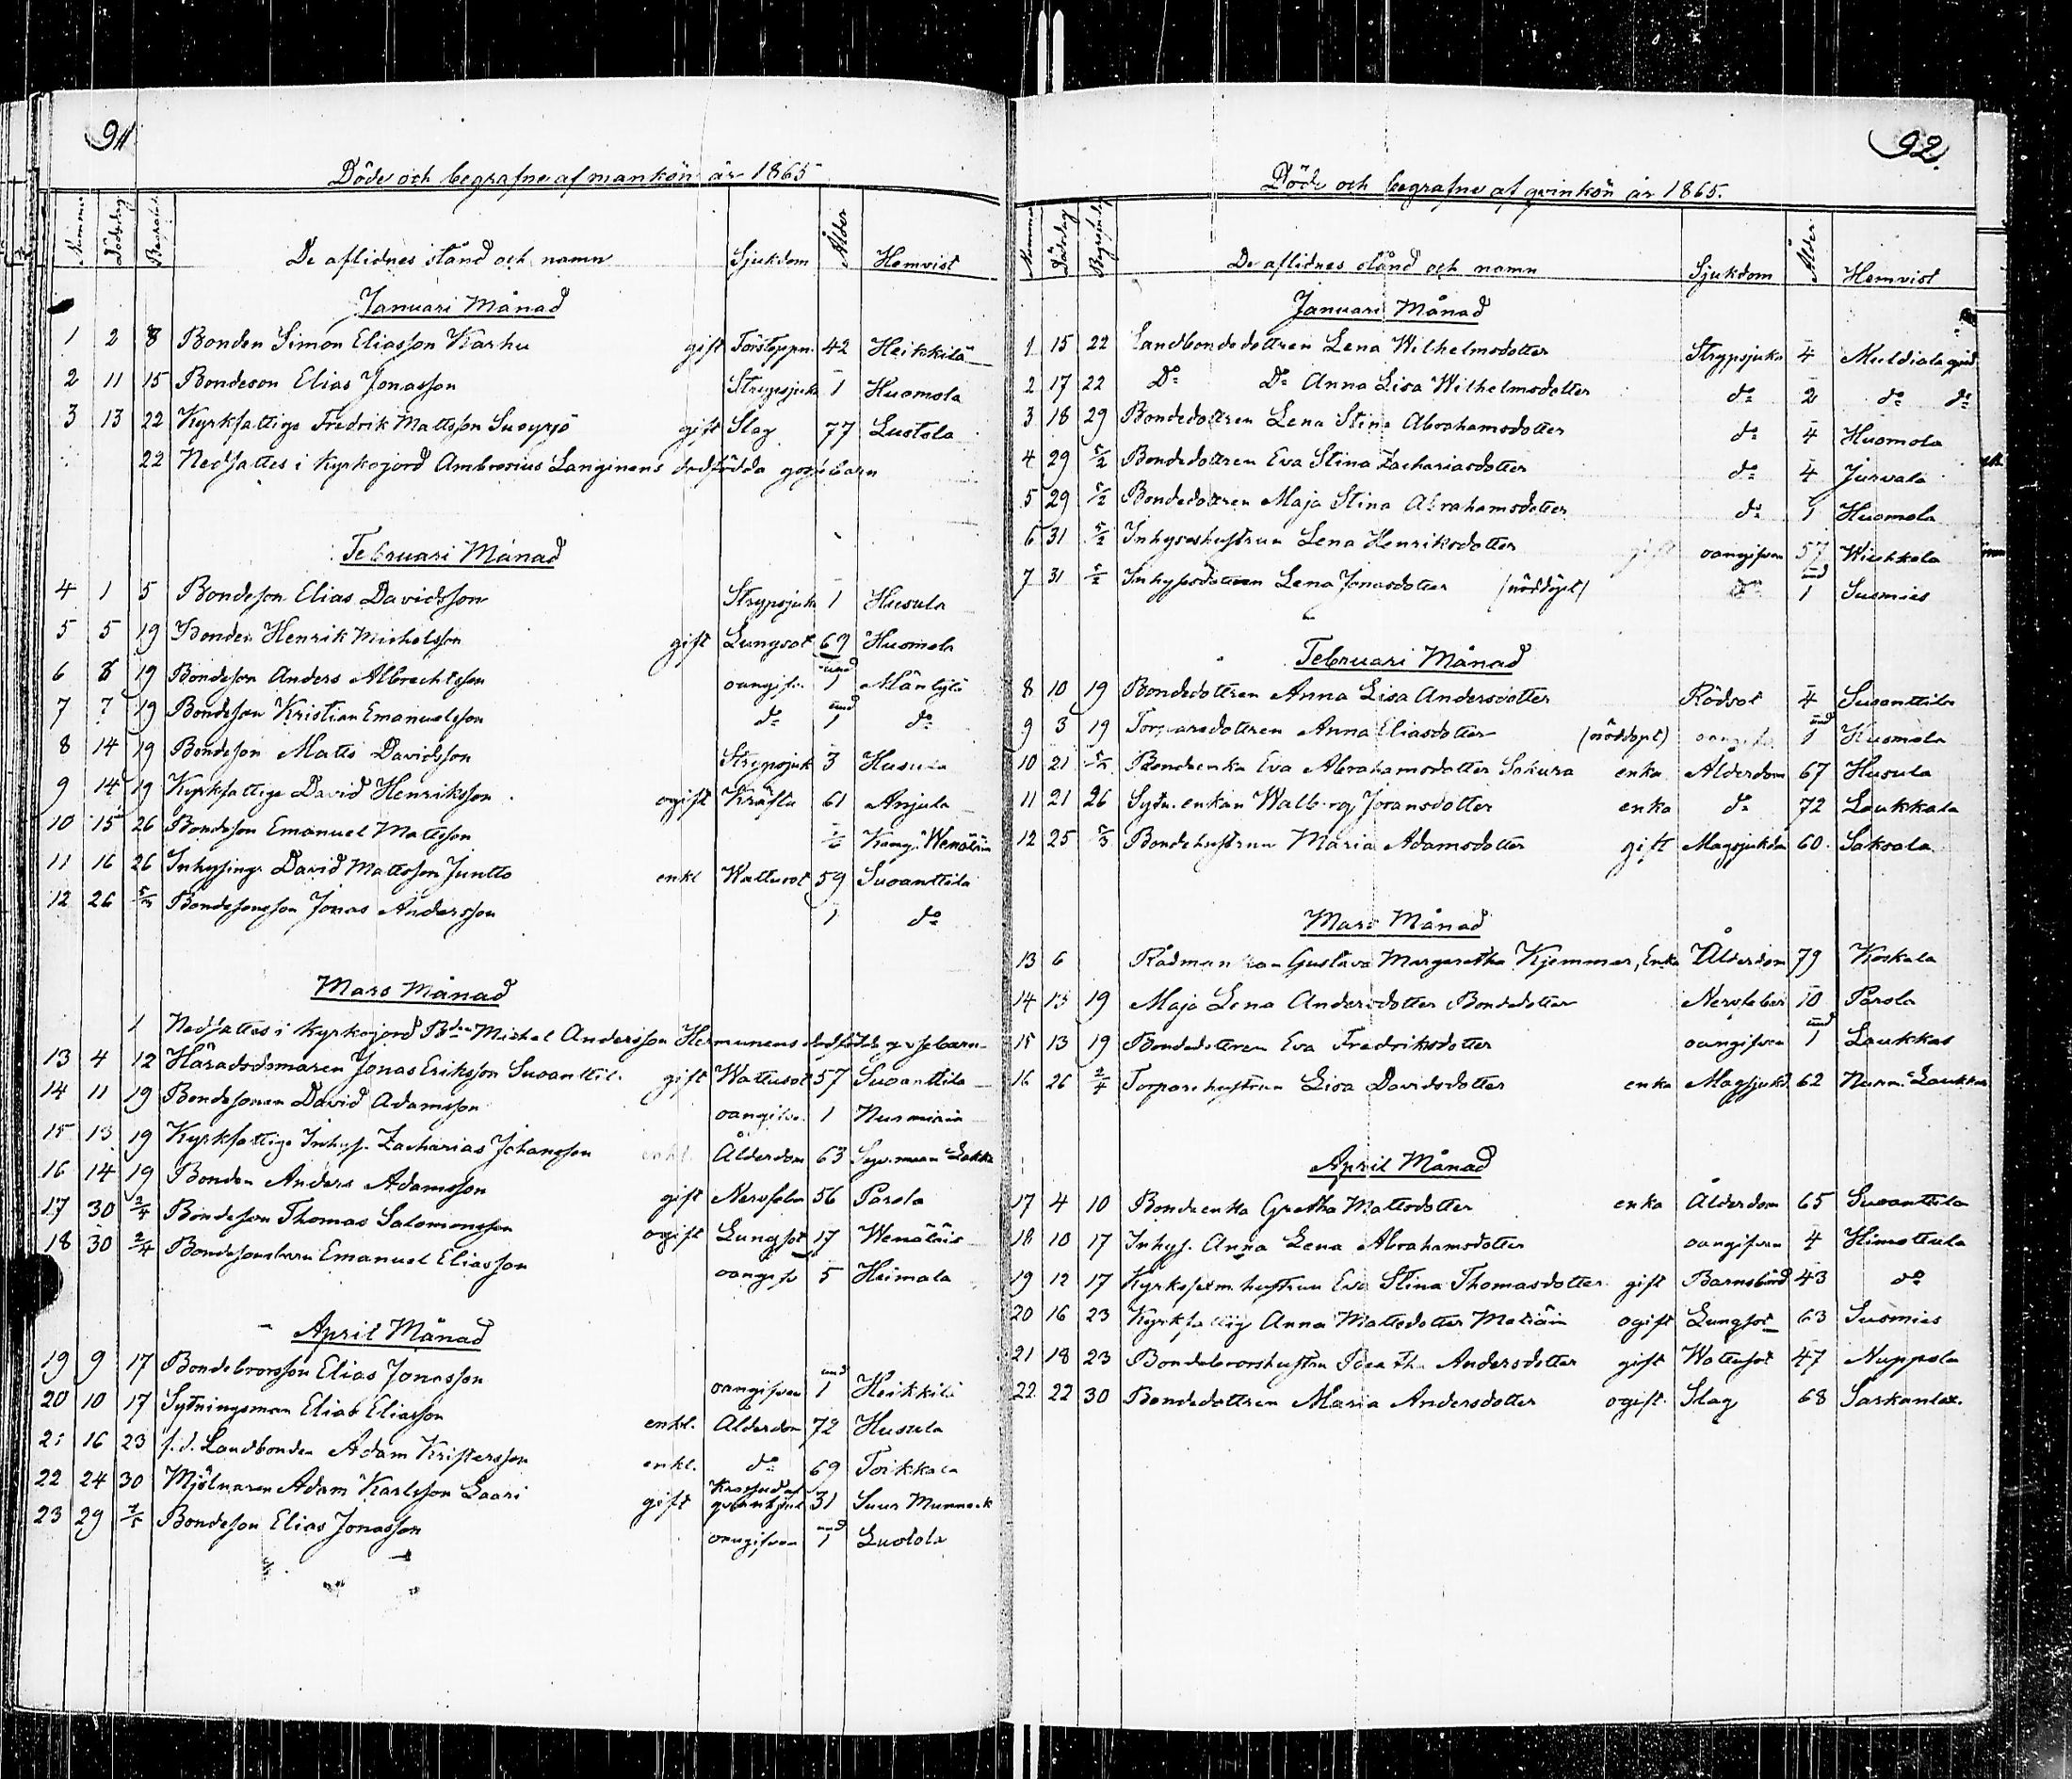 91
Döde och begrafne af mankön år 1865
Nummer Dödsdag De aflidnes stånd och namn Sjukdom Ålder Hemvist
Januari Månad
1 2 8 Bonden Simon Eliasson Karhu gift 42 Heikkilä
2 11 15 Bondeson Elias Jonasson Strypsjuka 1 Huomola
3 13 22 Kyrkfattige Fredrik Mattsson gift Slag 77
22 Nedsattes i Kyrkojord Ambrosius Langinens dödfödda gossebarn
Februari Månad
4 1 5 Bondeson Elias Davidsson Strypsjuka 1 Husula
5 5 19 Bonden Henrik Michelsson gift Lungsot 69 Huomola
6 8 19 Bondeson Anders Albrechtsson oangifv. und 1 Mäntylä
7 7 19 Bondeson Kristian Emanuelsson do und 1 do
8 14 19 Bondeson Matts Davidsson Strypsjuk 3 Husula
9 14 19 Kyrkfattige David Henriksson ogift Kräfta 61 Anjala
10 15 26 Bondeson Emanuel Mattsson 1/2
11 16 26 Inhysing David Mattsson Juntto enkl Wattusot 59 Suoanttila
12 26 5/3 Bondesonson Jonas Andersson 1 do
Mars Månad
1 Nedsattes i Kyrkojord Bden Michel Andersson Hermunens dödfödde gossebarn
13 4 12 Häradsdomaren Jonas Eriksson Suoanttil. gift Wattusot 57 Suoanttila
14 11 19 Bondesonen David Adamsson oangifve. 1
15 13 19 Kyrkfattige Inhys. Zacharias Johansson enkl. Ålderdom 63
16 14 19 Bonden Anders Adamsson gift Nervfeber 56 Parola
17 30 2/4 Bondeson Thomas Salomonsson ogift Lungsot 17 Wenäläis
18 30 2/4 Bondesonsbarn Emanuel Eliasson oangifv 5 Heimala
April Månad
19 9 17 Bondebrorsson Elias Jonasson oangifven und 1 Heikkilä
20 10 17 Sytningsman Elias Eliasson enkl. Ålderdom 72 Husula
21 16 23 f.d. Landbonden Adam Kristersson enkl. do 69 Toikkala
22 24 30 Mjölnaren Adam Karlsson Laari gift Krossad af qvarnhjul 31 Suur Munneck
23 29 7/5 Bondeson Elias Jonasson oangifven und 1 Luotola
92.
Döde och begrafne af qvinkön år 1865.
Nummer Dödsdag Begrafndag De aflidnes stånd och namn Sjukdom Ålder Hemvist
Januari Månad
1 15 22 Landbondedottren Lena Wilhelmsdotter Strypsjuka 4
2 17 22 Do Do Anna Lisa Wilhelmsdotter do 2 do do
3 18 29 Bondedottren Lena Stina Abrahamsdotter do 4 Huomola
4 29 5/2 Bondedottren Eva Stina Zachariasdotter do 4 Jurvala
5 29 5/2 Bondedottren Maja Stina Abrahamsdotter do 1 Huomola
6 31 5/2 Inhyseshustrun Lena Henriksdotter gift oangifven 57 Wiukkola
7 31 5/2 Inhysesdottren Lena Jonasdotter (nöddöpt) do und 1 Suomies
Februari Månad
8 10 19 Bondedottren Anna Lisa Andersdotter Rödsot 4 Suoanttila
9 3 19 Torparedottren Anna Eliasdotter (nöddöpt) oangifv. und 1 Huomola
10 21 Bondeenka Eva Abrahamsdotter Sakura enka Ålderdom 67 Husula
11 21 26 Sytn. enkan Walborg Jöransdotter enka do 72 Laukkala
12 25 5/3 Bondehustrun Maria Adamsdotter gift Magsjukdm 60 Saksala
Mars Månad
13 6 Rådman Gustava Margaretha Kjemmer, Enka Ålderdom 79 Koskela
14 13 19 Maja Lena Andersdotter Bondedotter Nervfeber 10 Parola
15 13 19 Bondedottren Eva Fredriksdotter oangifven und 1 Laukkas
16 26 2/4 Torparehustrun Lisa Davidsdotter enka Magsjukd. 62
April Månad
17 4 10 Bondeenka Gretha Mattsdotter enka Ålderdom 65 Suoanttila
18 10 17 Inhys. Anna Lena Abrahamsdotter oangifven 4 Himottula
19 12 17 hustrun Eva Stina Thomasdotter gift Barnsbörd 43 do
20 16 23 Kyrkfattig Anna Mattsdotter ogift Lungsot 63 Suomies
21 18 23 Bondebrorshustru Beatha Andersdotter gift Wattusot 47 Nuppola
22 22 30 Bondedottren Maria Andersdotter ogift Slag 68 Sarkalax.